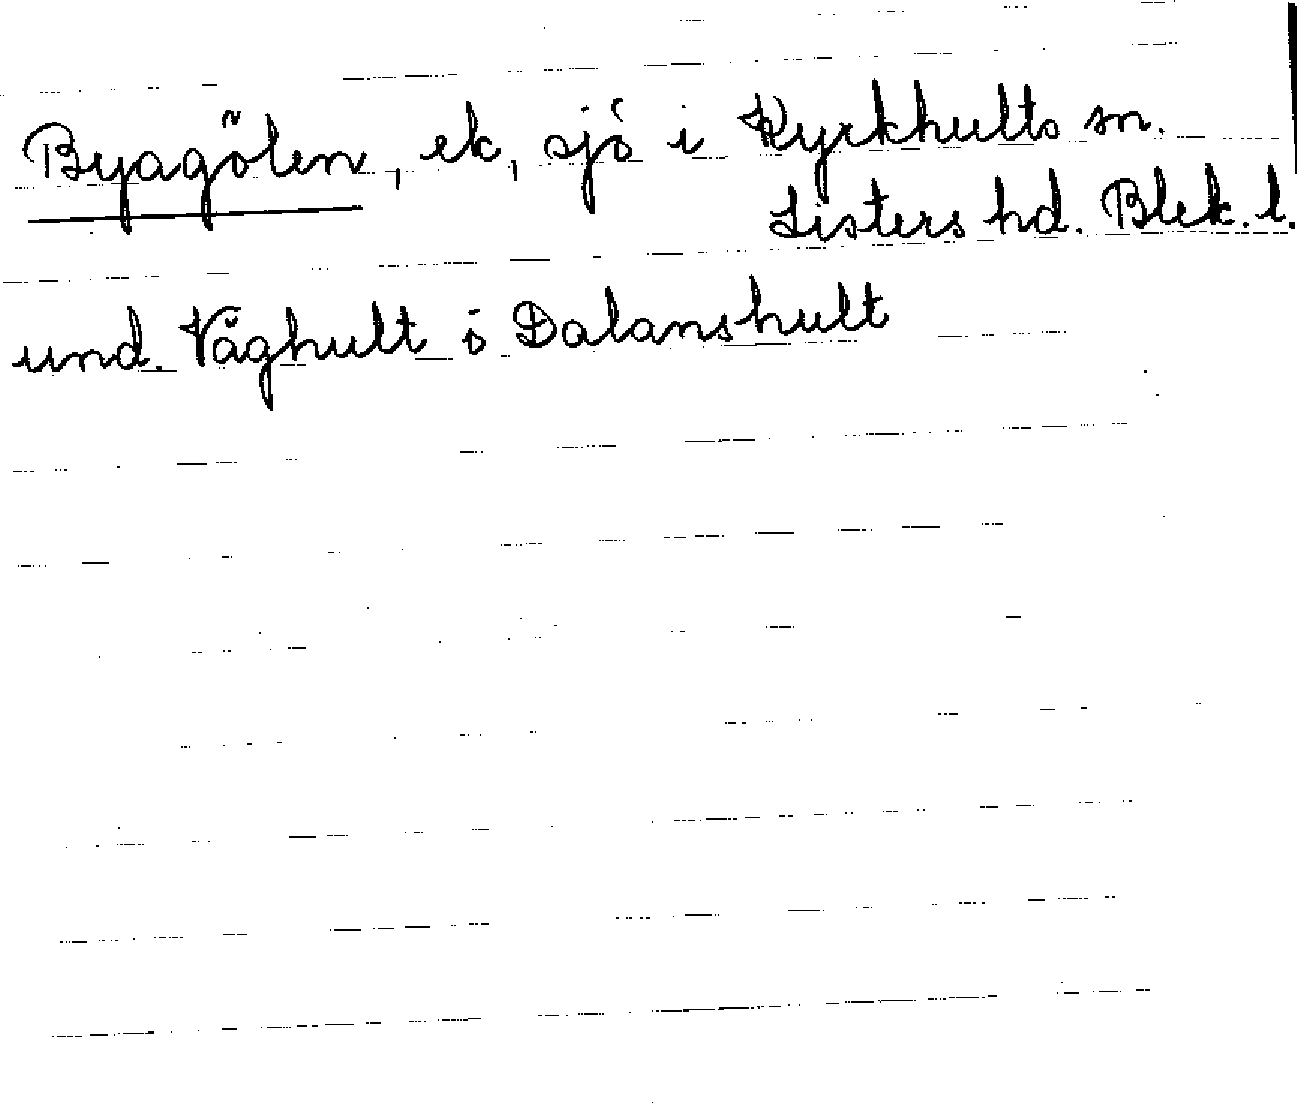 Byagölen, ek, sjö i Kyrkhults sn.
Listers hd. Blek. l.
und. Våghult ö Dalanshult